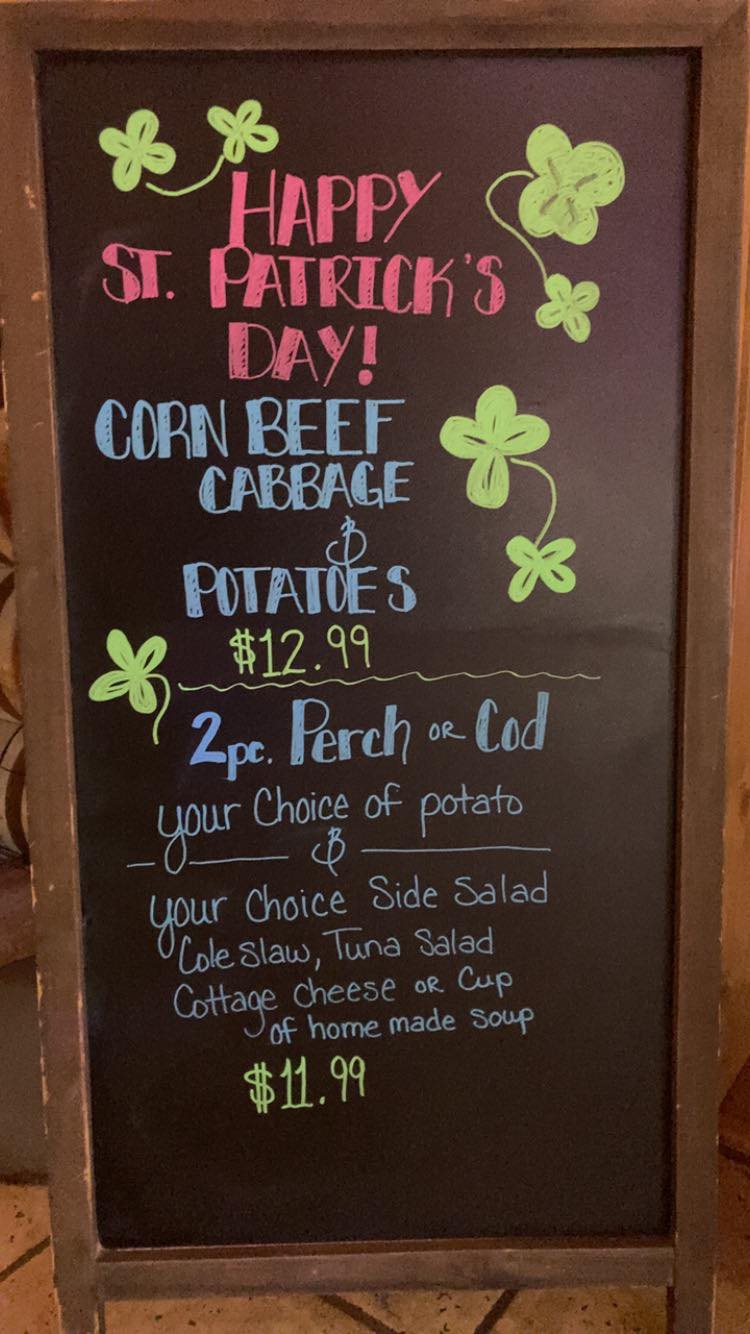 HAPPY
ST. PATRICK'S
DAY!
CORN BEEF
CABBAGE
&
POTATOES
$12.99
2pc. Perch OR Cod
your Choice of potato
&
your Choice Side Salad
Cole Slaw, Tuna Salad
Cottage cheese OR Cup
of home made soup
$11.99